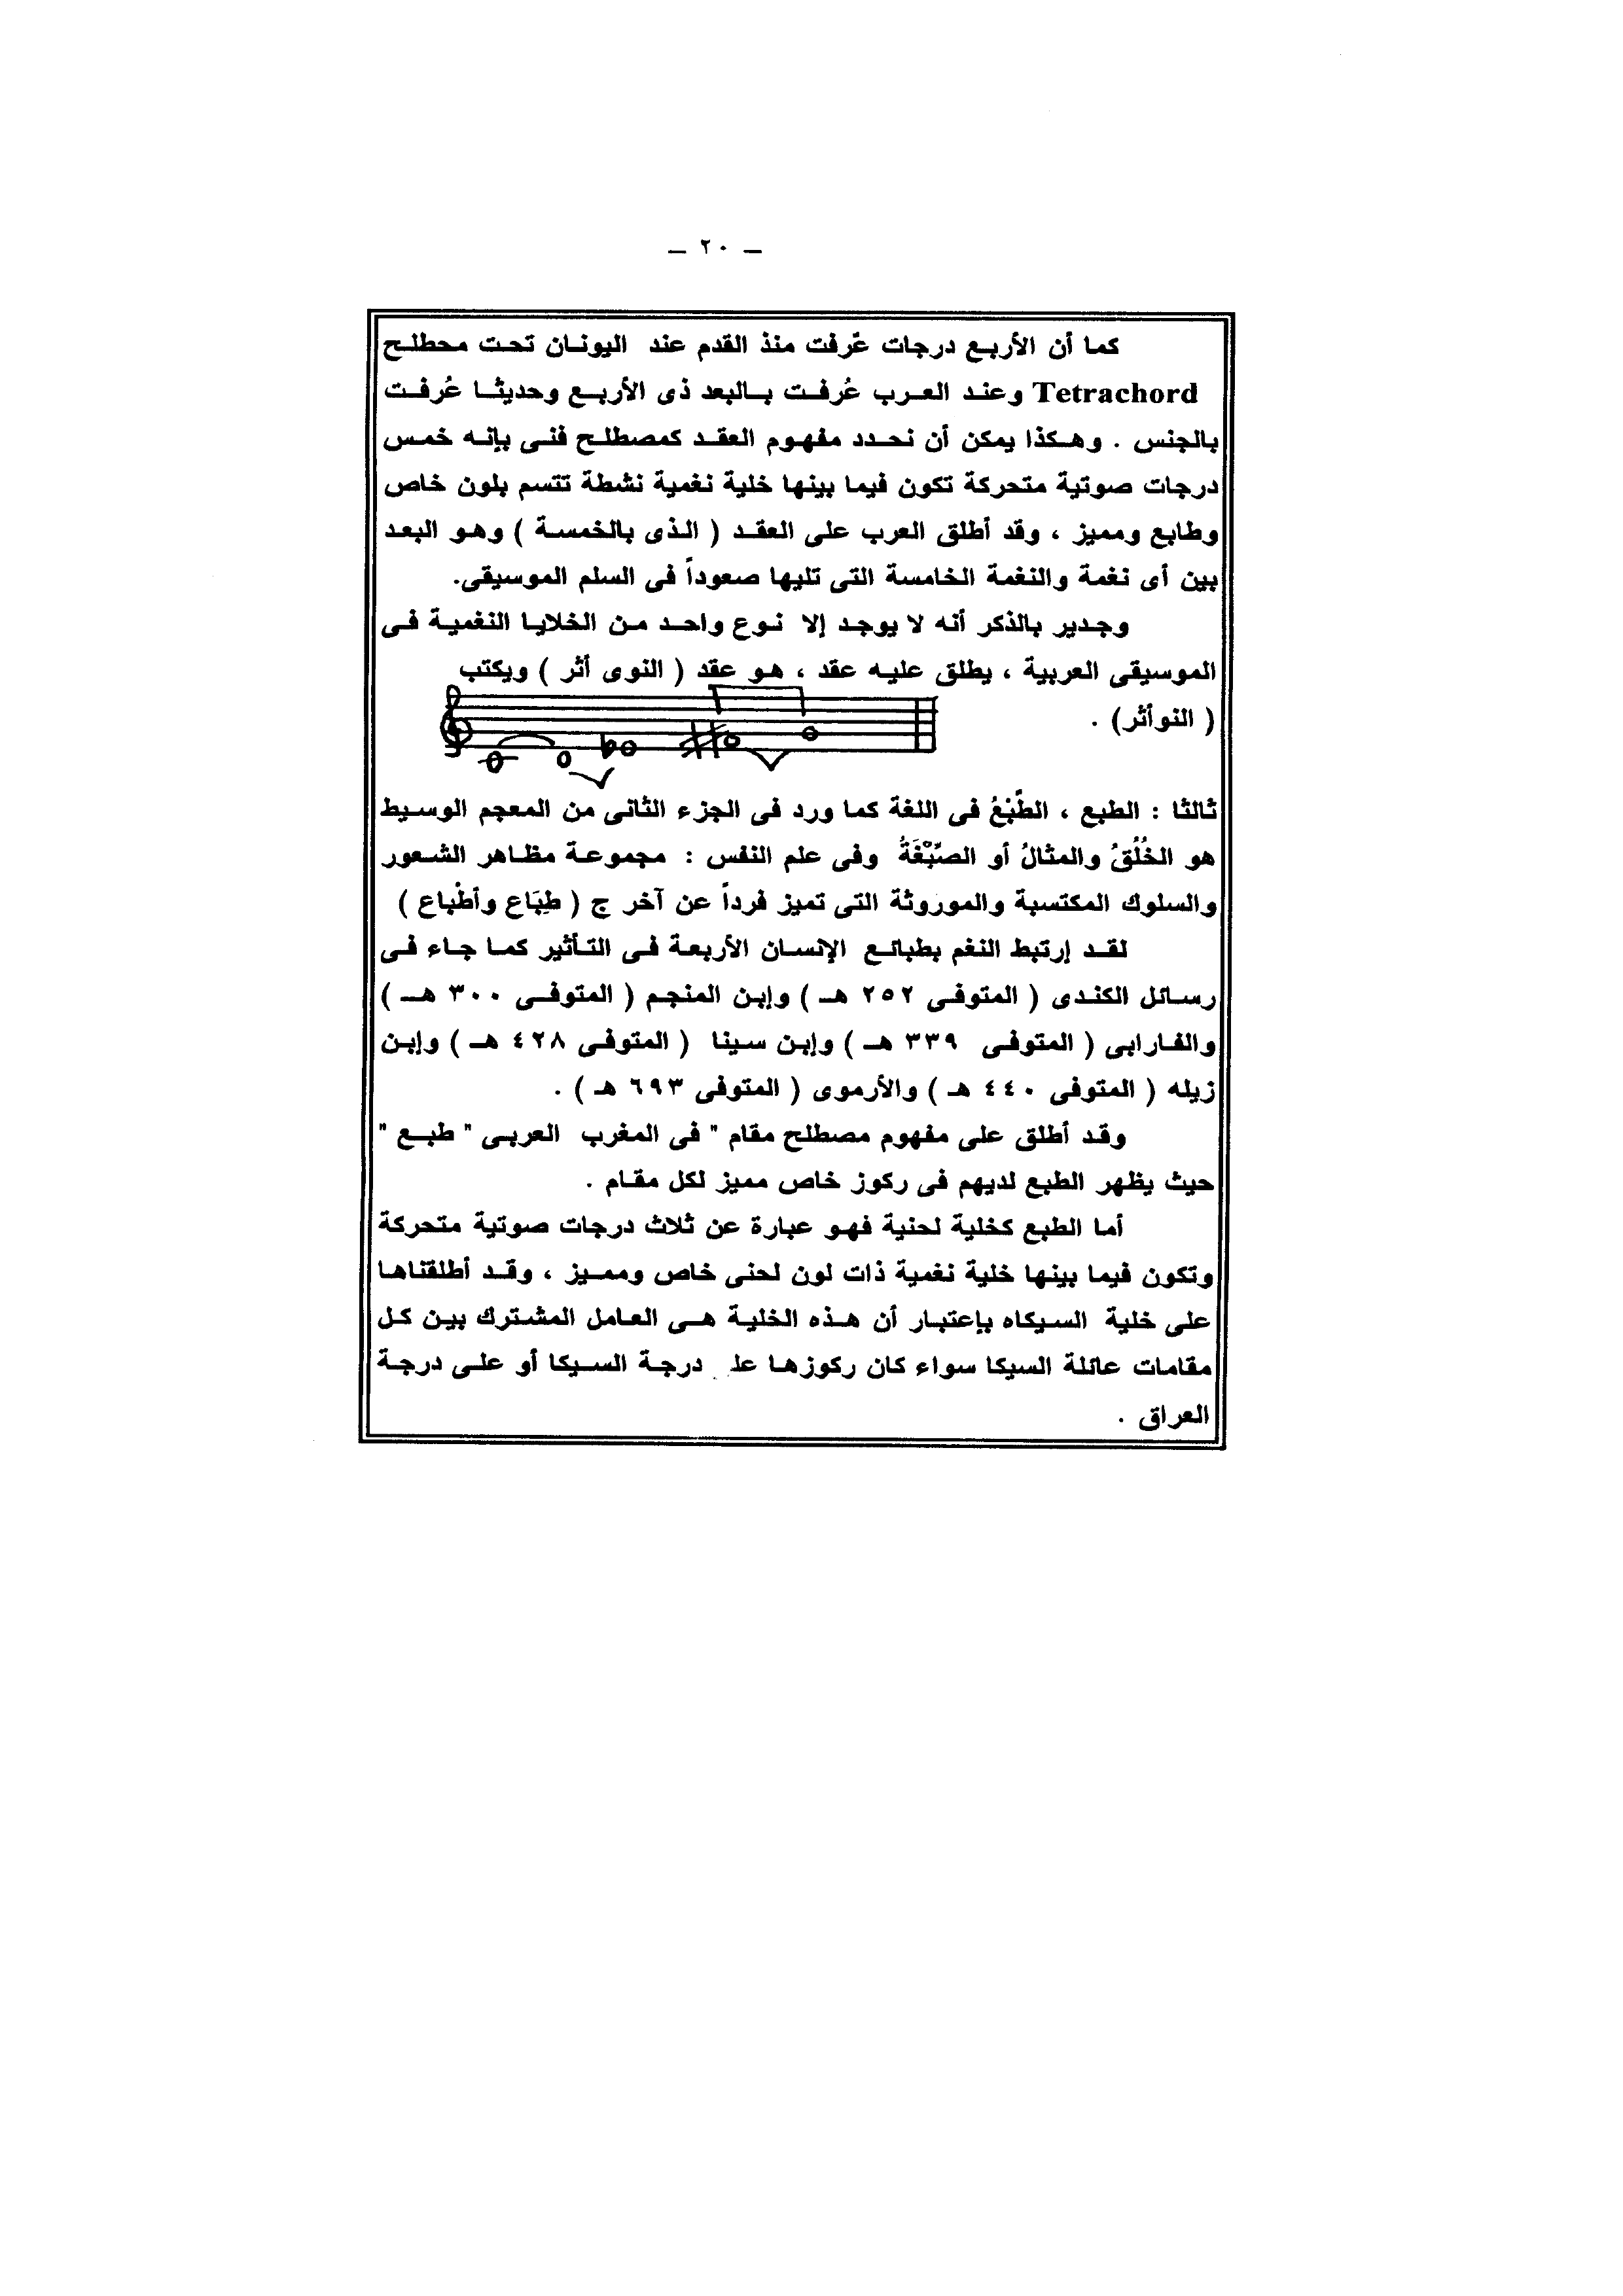 – ٢٠ –
كما أن الأربع درجات عُرفت منذ القدم عند اليونان تحت محطلح
Tetrachord وعند العرب عُرفت بالبعد ذى الأربع وحديثا عُرفت
بالجنس . وهكذا يمكن أن نحدد مفهوم العقد كمصطلح فنى بإنه خمس
درجات صوتية متحركة تكون فيما بينها خلية نغمية نشطة تتسم بلون خاص
وطابع ومميز ، وقد أطلق العرب على العقد ( الذى بالخمسة ) وهو البعد
بين أى نغمة والنغمة الخامسة التى تليها صعوداً فى السلم الموسيقى.
وجدير بالذكر أنه لا يوجد إلا نوع واحد من الخلايا النغمية فى
الموسيقى العربية ، يطلق عليه عقد ، هو عقد ( النوى أثر ) ويكتب
( النوأثر) .
ثالثا : الطبع ، الطَّبْعُ فى اللغة كما ورد فى الجزء الثانى من المعجم الوسيط
هو الخُلُقُ والمثالُ أو الصِّبْغَةُ وفى علم النفس : مجموعة مظاهر الشعور
والسلوك المكتسبة والموروثة التى تميز فرداً عن آخر ج ( طِبَاع وأطْباع )
لقد إرتبط النغم بطبائع الإنسان الأربعة فى التأثير كما جاء فى
رسائل الكندى ( المتوفى ٢٥٢ هـ ) وإبن المنجم ( المتوفى ٣٠٠ هـ )
والفارابى ( المتوفى ٣٣٩ هـ ) وإبن سينا ( المتوفى ٤٢٨ هـ ) وإبن
زيله ( المتوفى ٤٤٠ هـ ) والأرموى ( المتوفى ٦٩٣ هـ ) .
وقد أطلق على مفهوم مصطلح مقام " فى المغرب العربى " طبع "
حيث يظهر الطبع لديهم فى ركوز خاص مميز لكل مقام .
أما الطبع كخلية لحنية فهو عبارة عن ثلاث درجات صوتية متحركة
وتكون فيما بينها خلية نغمية ذات لون لحنى خاص ومميز ، وقد أطلقناها
على خلية السيكاه بإعتبار أن هذه الخلية هى العامل المشترك بين كل
مقامات عائلة السيكا سواء كان ركوزها درجة السيكا أو على درجة
العراق .